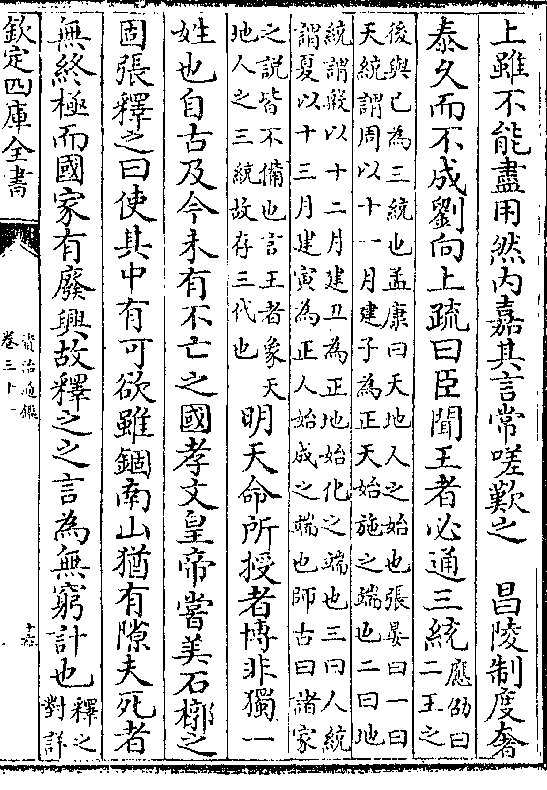 上雖不能盡用然内嘉其言常嗟歎之　昌陵制度奢
泰久而不成劉向上疏曰臣聞王者必通三統應劭曰二王之
後與已為三統也孟康曰天地人之始也張晏曰一曰
天統謂周以十一月建子為正天始施之端也二曰地
統謂殷以十二月建丑為正地始化之端也三曰人統
謂夏以十三月建寅為正人始成之端也師古曰諸家
之說皆不備也言王者象天
地人之三統故存三代也
明天命所授者博非獨一
姓也自古及今未有不亡之國孝文皇帝嘗美石槨之
固張釋之曰使其中有可欲雖錮南山猶有隙夫死者
無終極而國家有廢興故釋之之言為無窮計也釋之對詳
欽定四庫全書
資治通鑑
卷三十一